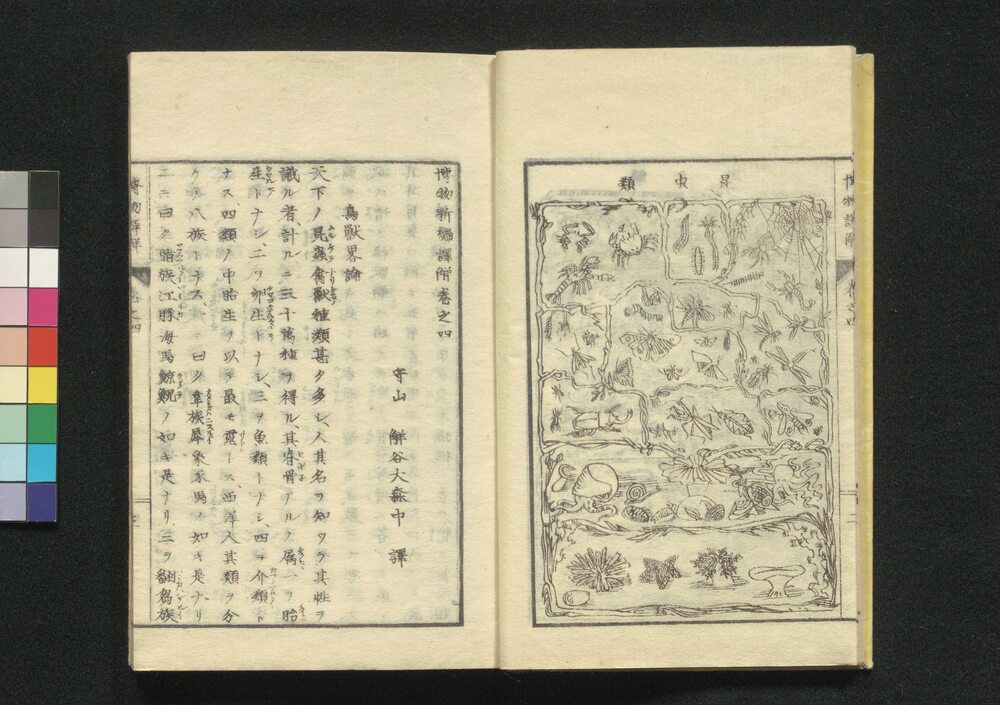 昆虫類
博物新編譯解巻之四
守山 解谷大森中 譯
鳥獸畧論
天下ノ昆蟲禽獸種類甚タ多シ、人其名ヲ知ツテ其性ヲ
識ル者、計ルニ三十萬種ヲ得ル、其脊骨アルノ属一ヲ胎
生トナシ、二ヲ卵生トナシ、三ヲ魚類トナシ、四ヲ介類ト
ナス、四類ノ中胎生ヲ以テ最モ靈トス、西洋人其類ヲ分
ケテ八族トナス、一ニ曰ク韋族犀象豕馬ノ如キ是ナリ
二ニ曰ク脂族江豚海馬鯨鯢ノ如キ是ナリ三ヲ翻芻族